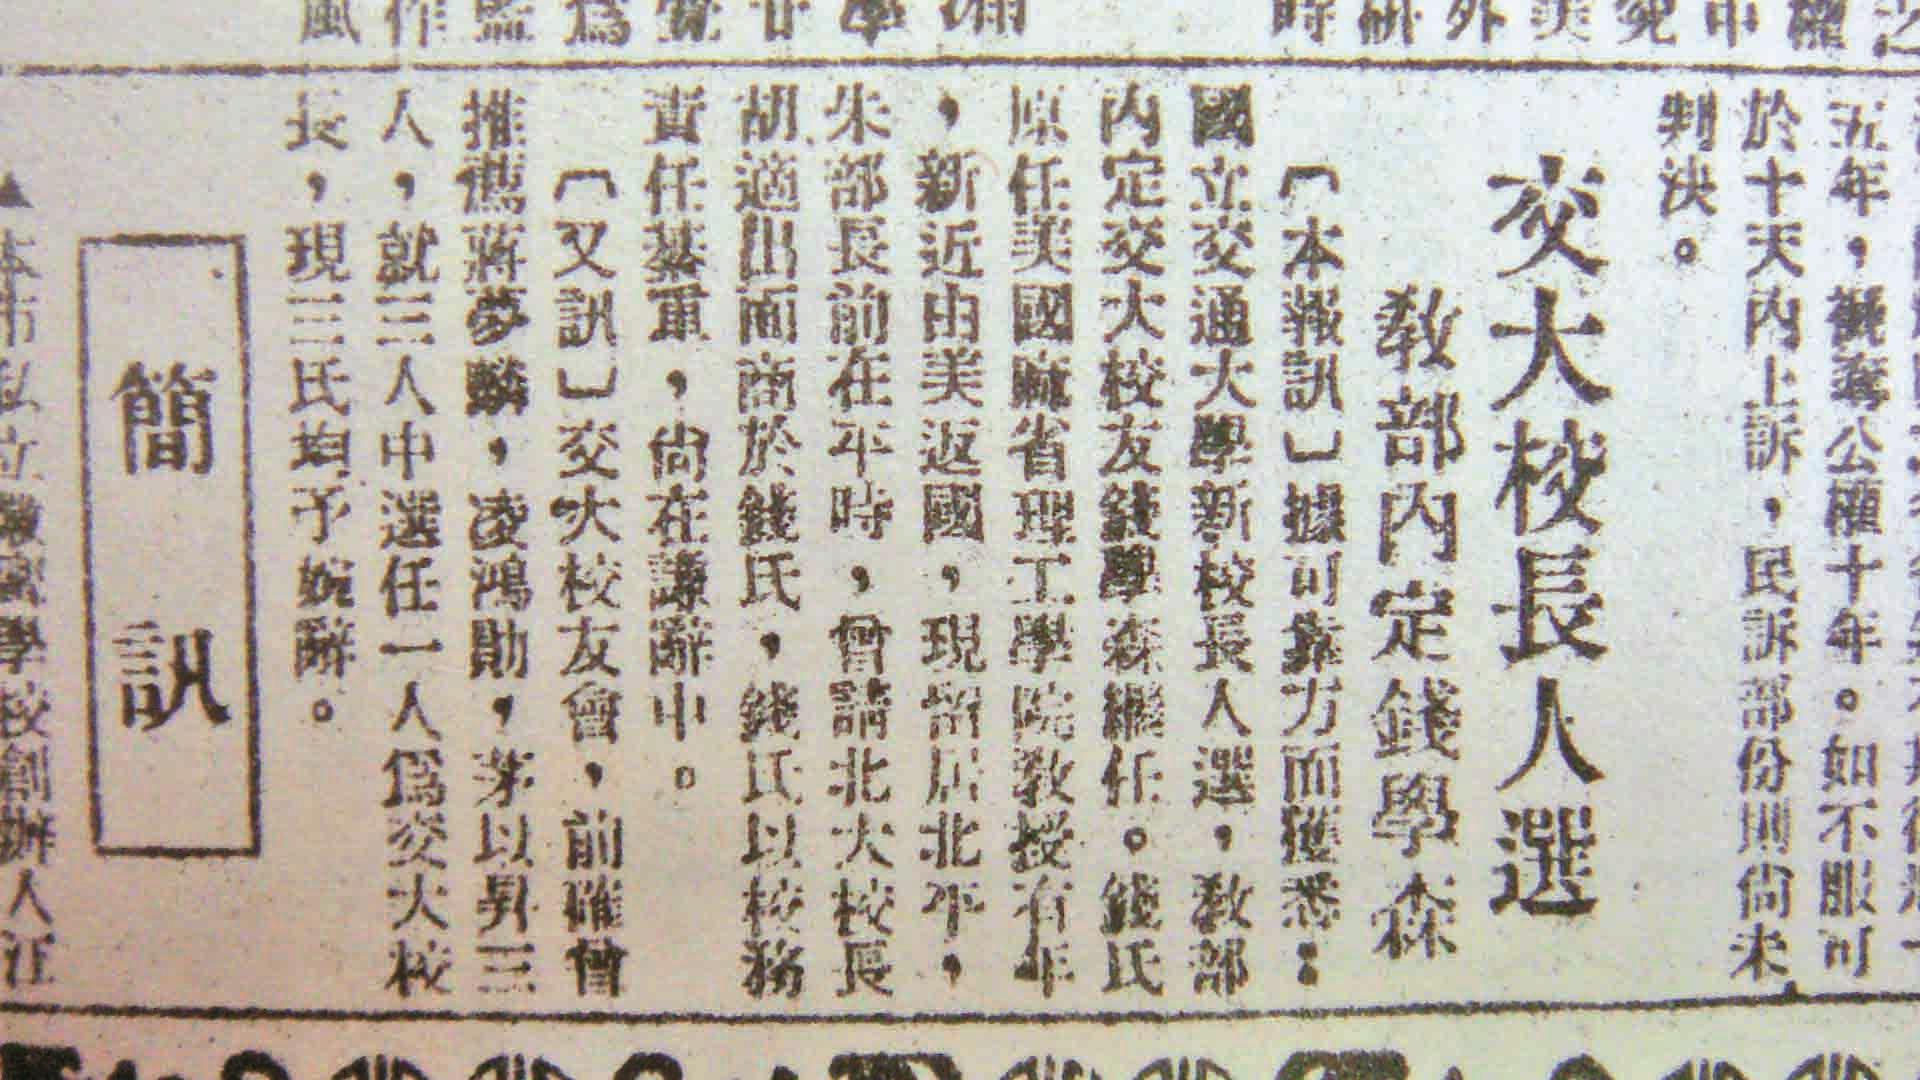 五年，褫奪公權十年。如不服可
於十天內上訴，民訴部份則尚未
判決。
交大校長人選
教部內定錢學森
〔本報訊〕據可靠方面獲悉：
國立交通大學新校長人選，教部
內定交大校友錢學森繼任。錢氏
原任美國麻省理工學院教授有年
，新近由美返國，現留居北平，
朱部長前在平時，曾請北大校長
胡適出面商於錢氏，錢氏以校務
責任綦重，尚在謙辭中。
〔又訊〕交大校友會，前確曾
推薦蔣夢麟，凌鴻勛，茅以昇三
人，就三人中選任一人爲交大校
長，現三氏均予婉辭。
簡訊
▲本市私立學校創辦人江